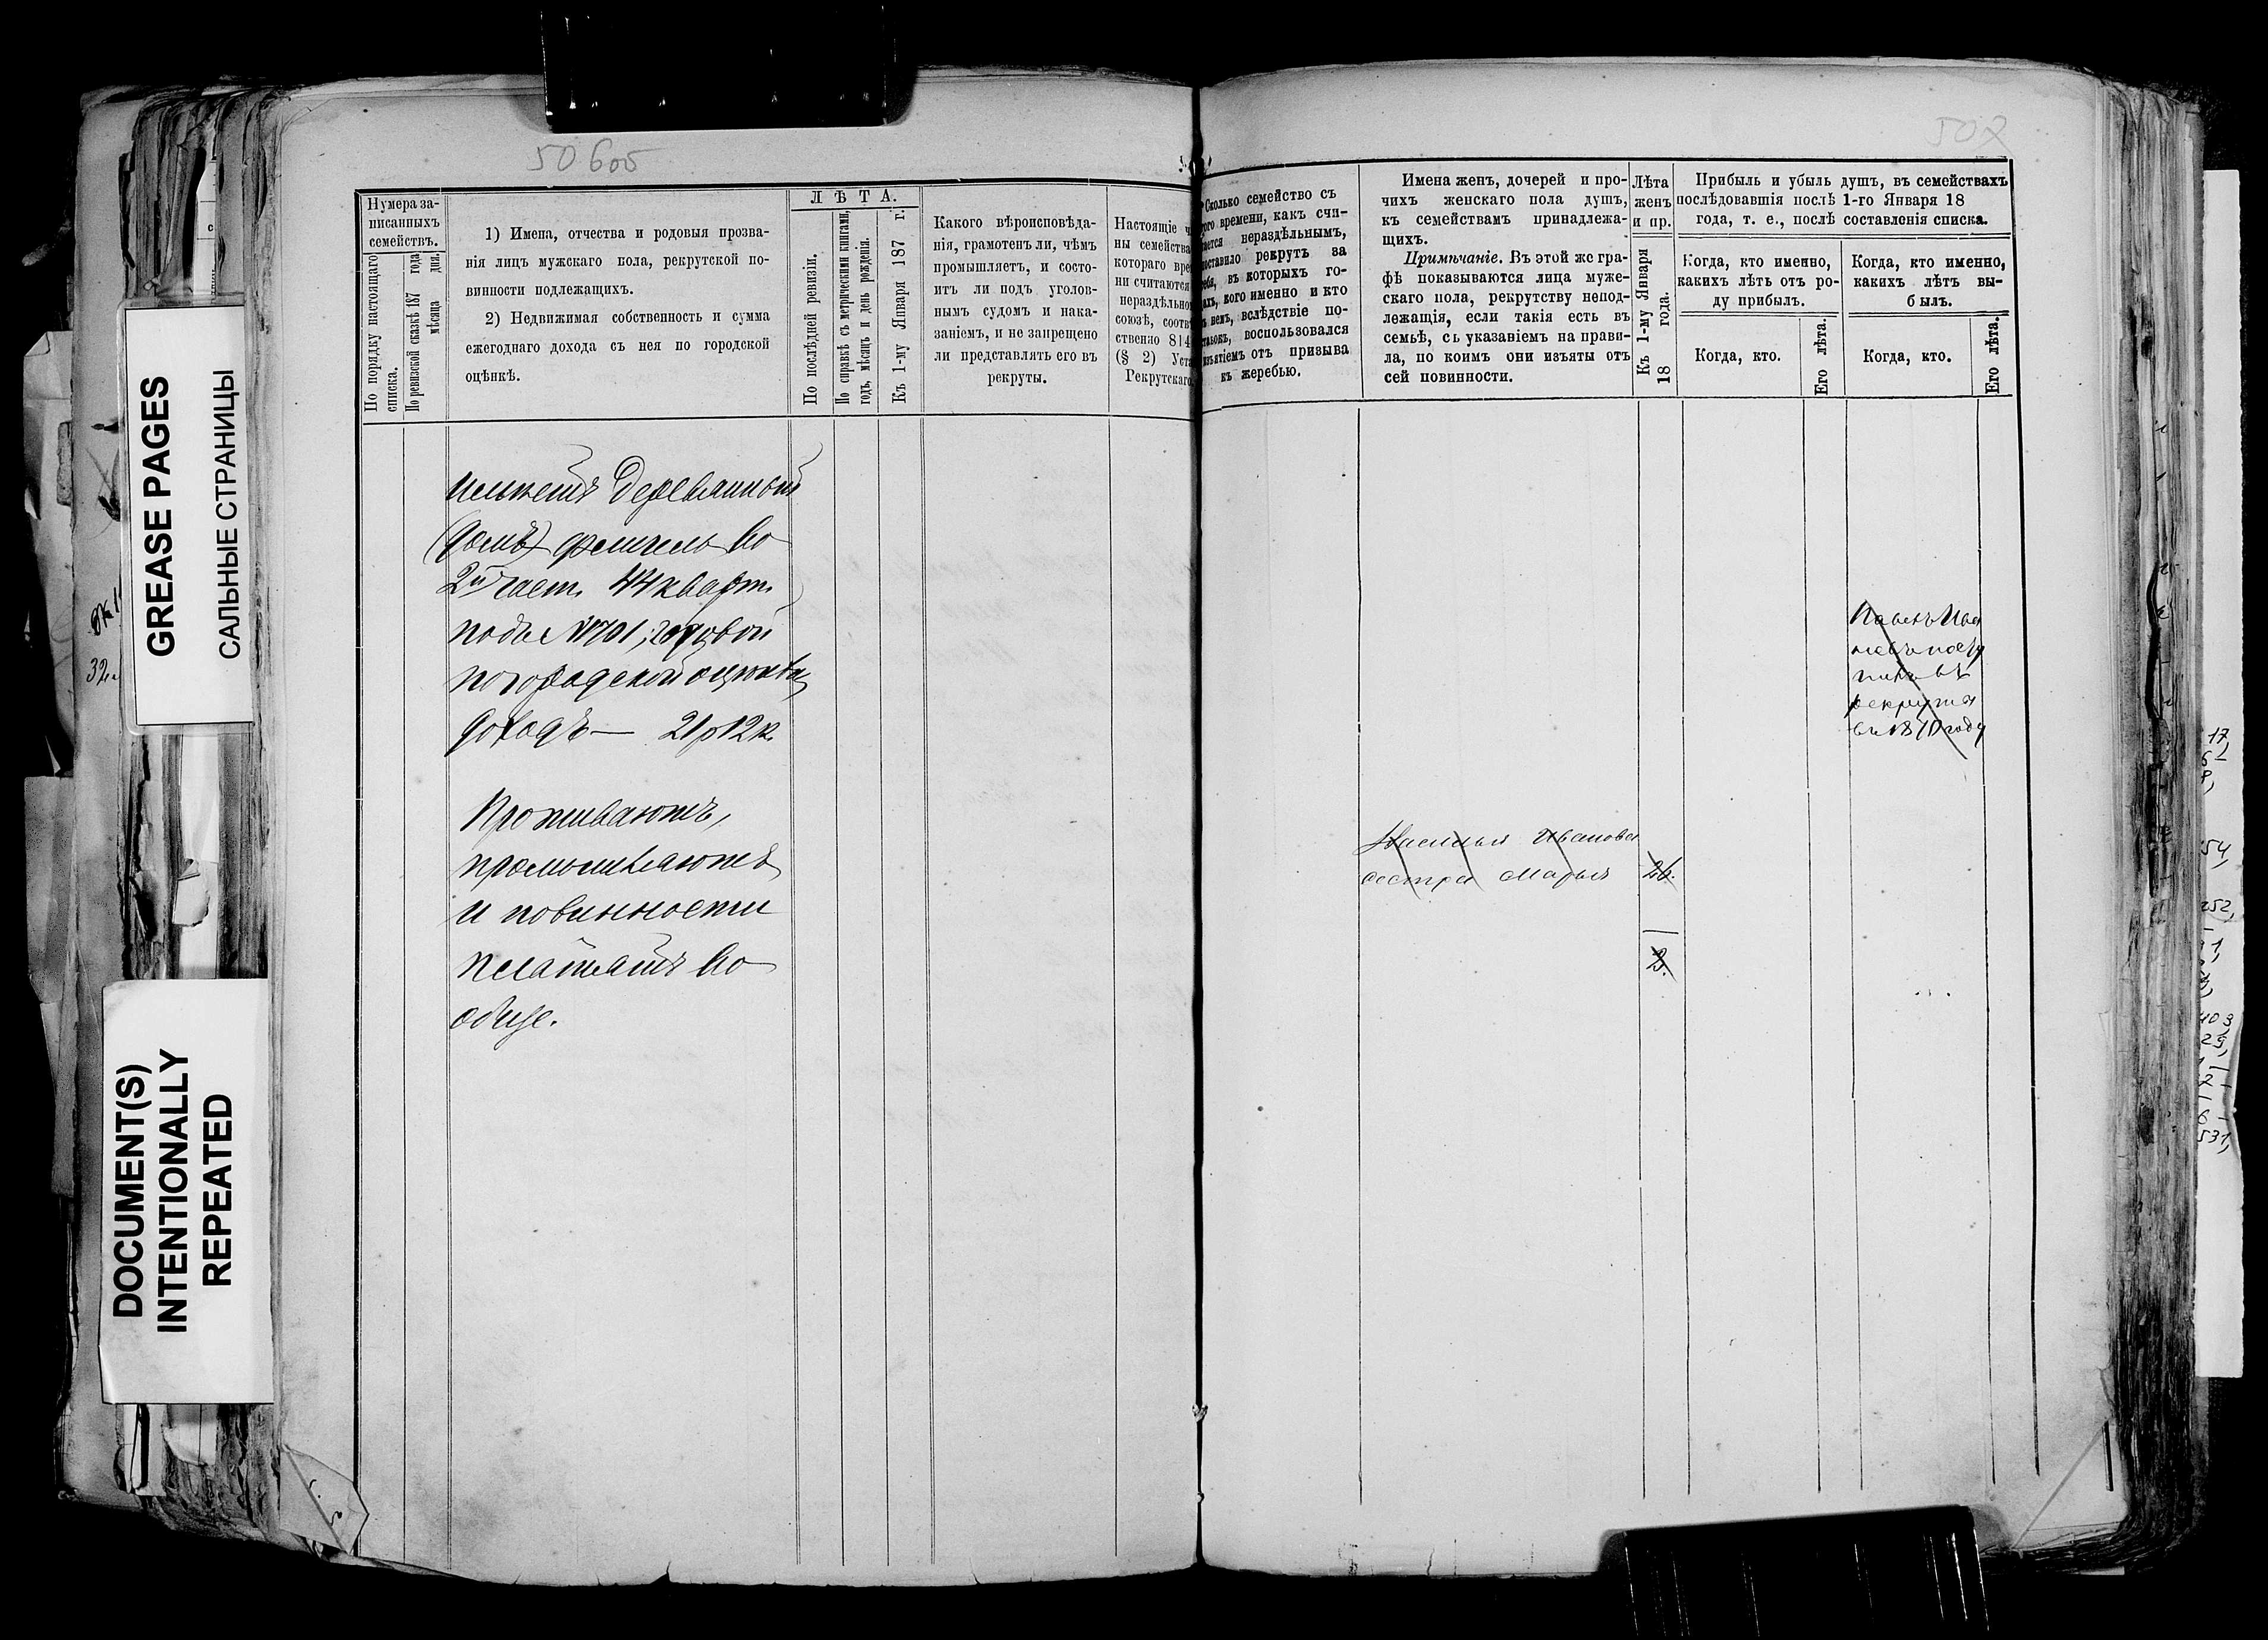 GREASE PAGES
САЛЬНЫЕ СТРАНИЦЫ
DOCUMENT(S)
INTENTIONALLY
REPEATED
50 6об
Нумера за-
писанныхъ
семействъ.
По порядку настоящаго
списка.
По ревизской сказкѣ 187 года
мѣсяца дня.
1) Имена, отчества и родовыя прозва-
нія лицъ мужскаго пола, рекрутской по-
винности подлежащихъ.
2) Недвижимая собственность и сумма
ежегоднаго дохода съ нея по городской
оцѣнкѣ.
ЛѢТА.
По послѣдней ревизіи.
По справкѣ съ метрическими книгами,
годъ, мѣсяцъ и день рожденія.
Къ 1-му Января 187 г.
Какого вѣроисповѣда-
нія, грамотенъ ли, чѣмъ
промышляетъ, и состо-
итъ ли подъ уголов-
нымъ судомъ и нака-
заніемъ, и не запрещено
ли представлять его въ
рекруты.
Настоящіе
ны семейства
котораго
ни считаются
нераздѣльно
союзѣ, соотв
ственно 814
(§ 2) Уст
Рекрутскаго
имѣетъ деревянный
(домъ) флигель во
2й част. 44 кварт.
подъ №701, годовой
по городской оцѣнкѣ
доходъ — 21р 12к.
Проживаютъ,
промышляютъ
и повинности
платятъ во
обще.
502
Сколько семейство съ
того времени, какъ счи-
тается нераздѣльнымъ,
поставило рекрутъ за
себя, въ которыхъ го-
дахъ, кого именно и кто
въ немъ, вслѣдствіе по-
ставокъ, воспользовался
изъятіемъ отъ призыва
къ жеребью.
Имена женъ, дочерей и про-
чихъ женскаго пола душъ,
къ семействамъ принадлежа-
щихъ.
Примѣчаніе. Въ этой же гра-
фѣ показываются лица муже-
скаго пола, рекрутству непод-
лежащія, если такія есть въ
семьѣ, съ указаніемъ на прави-
ла, по коимъ они изъяты отъ
сей повинности.
Лѣта
женъ
и пр.
Къ 1-му Января
18 года.
Прибыль и убыль душъ, въ семействахъ
послѣдовавшія послѣ 1-го Января 18
года, т. е., послѣ составленія списка.
Когда, кто именно,
какихъ лѣтъ отъ ро-
ду прибылъ.
Когда, кто.
Его лѣта.
Когда, кто именно,
какихъ лѣтъ вы-
былъ.
Когда, кто.
Его лѣта.
Ивановъ
рекруты
въ 1870 году
Ивановой
сестра Марья 26.